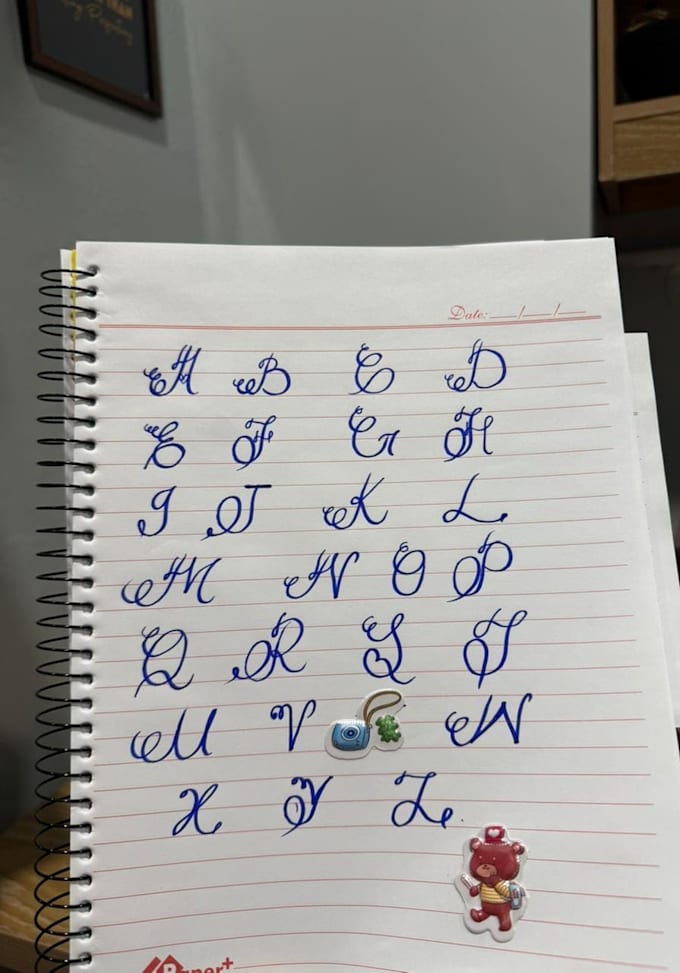 Date: __/__/__
A B C D
E F G H
I J K L
M N O P
Q R S T
U V W
X Y Z
Paper+